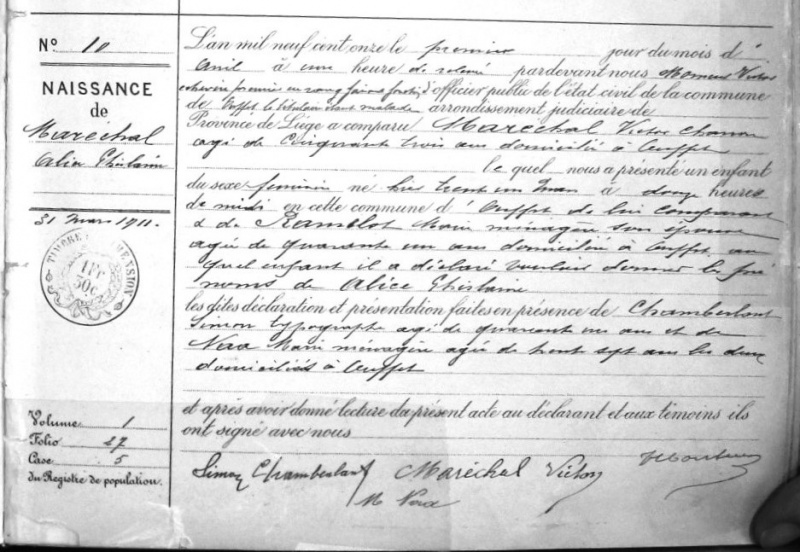 N° 10
NAISSANCE
de
Maréchal
Alice Ghislaine
31 mars 1911.
TIMBRE DIMENSION
1 FR
50 C
Volume 1
Folio 27
Case 5
du Registre de population.
L'an mil neuf cent onze le premier jour du mois d'
Avril à une heure de relevé pardevant nous Victor
échevin premier en rang faisant fonction d'officier public de l'état civil de la commune
de Ouffet le titulaire étant malade arrondissement judiciaire de
Province de Liége a comparu Maréchal Victor
agé de Cinquante trois ans domicilié à Ouffet
le quel nous a présenté un enfant
du sexe feminin né hier trent un Mars à douze heures
de midi en cette commune d'Ouffet de lui comparant
& de Ramelot Marie ménagère son épouse
agée de quarante un ans domiciliée à Ouffet au
quel enfant il a déclaré vouloir donner les pré
noms de Alice Ghislaine
les dites déclaration et présentation faites en présence de Chamberlant
Simon typographe agé de quarant un ans et de
Marie ménagère agée de trent sept ans les deux
domiciliés à Ouffet
et après avoir donné lecture du présent acte au déclarant et aux témoins ils
ont signé avec nous
Simon Chamberlant Maréchal Victor